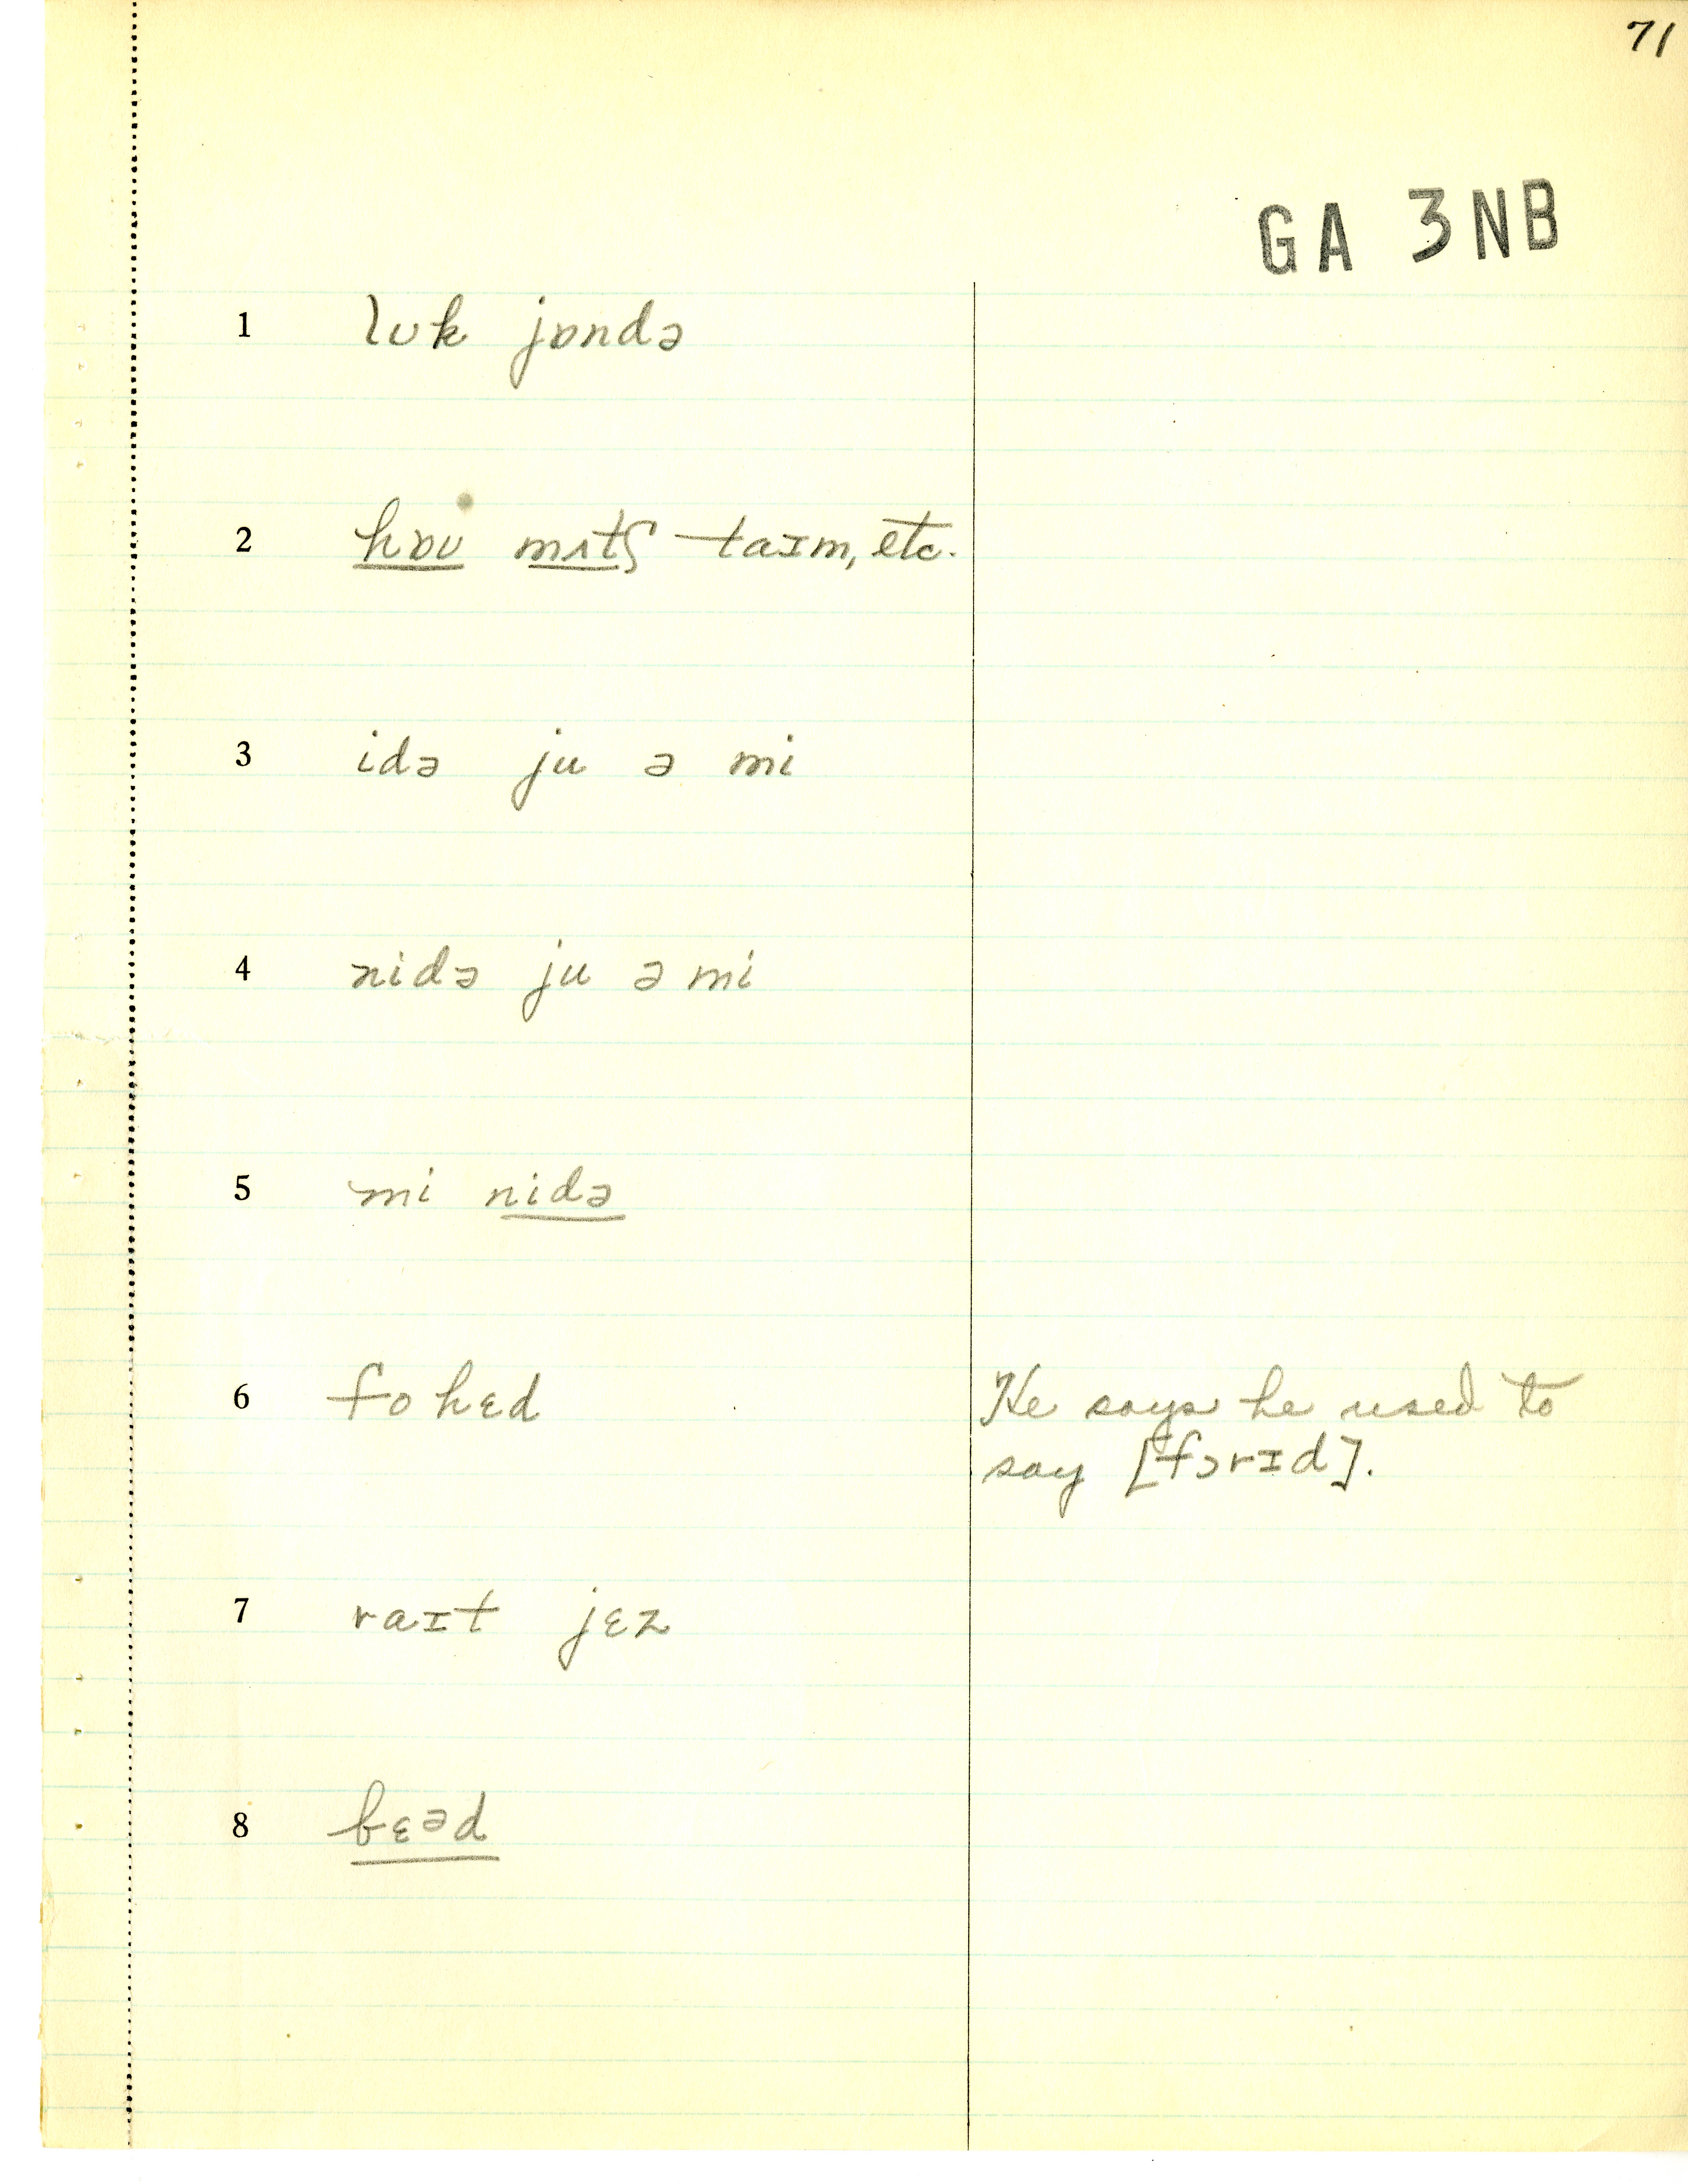 71
GA 3NB
1 lʊk jɒndə
2 hɒʊ mʌtʃ taɪm, etc.
3 idə ju ə mi
4 nidə ju ə mi
5 mi nidə
6 fo hɛd He says he used to
say [fɔrɪd].
7 raɪt jɛz
8 bɛəd